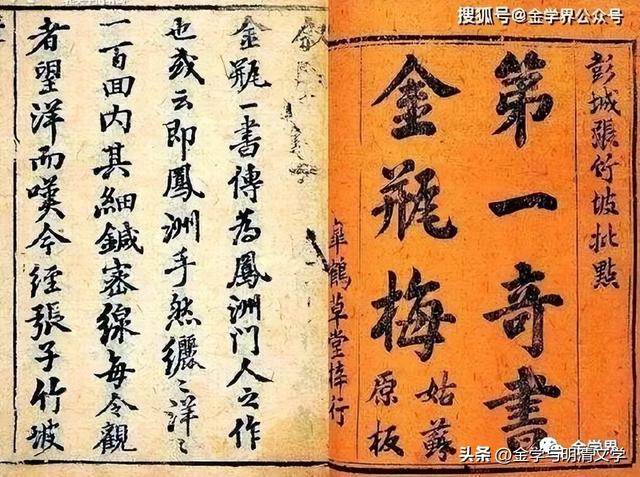 搜狐号@金学界公众号
彭城張竹坡批點
第一奇書
金瓶梅
姑蘇
原板
皐鶴草堂梓行
金瓶一書傳為鳳洲門人之作
也或云即鳳洲手然纚〻洋〻
一百回內其細鍼密線每令觀
者望洋而嘆今經張子竹坡
金学界
头条 @金学与明清文学